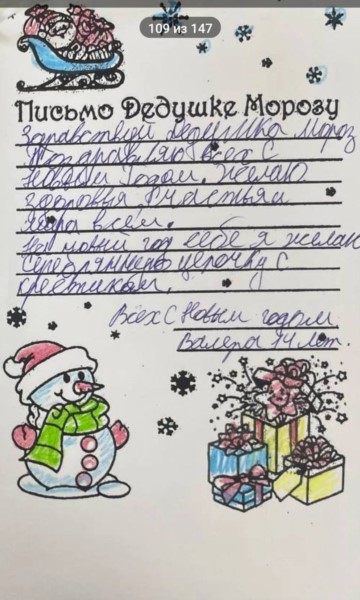 109 из 147
Письмо Дедушке Морозу
Здравствуй Дедушка Мороз
Поздравляю всех с
Новым Годом. Желаю
здоровья счастья
добра всем.
На новый год себе я желаю
серебрянную цепочку с
крестиком.
Всех с Новым годом
Валера 14 лет.